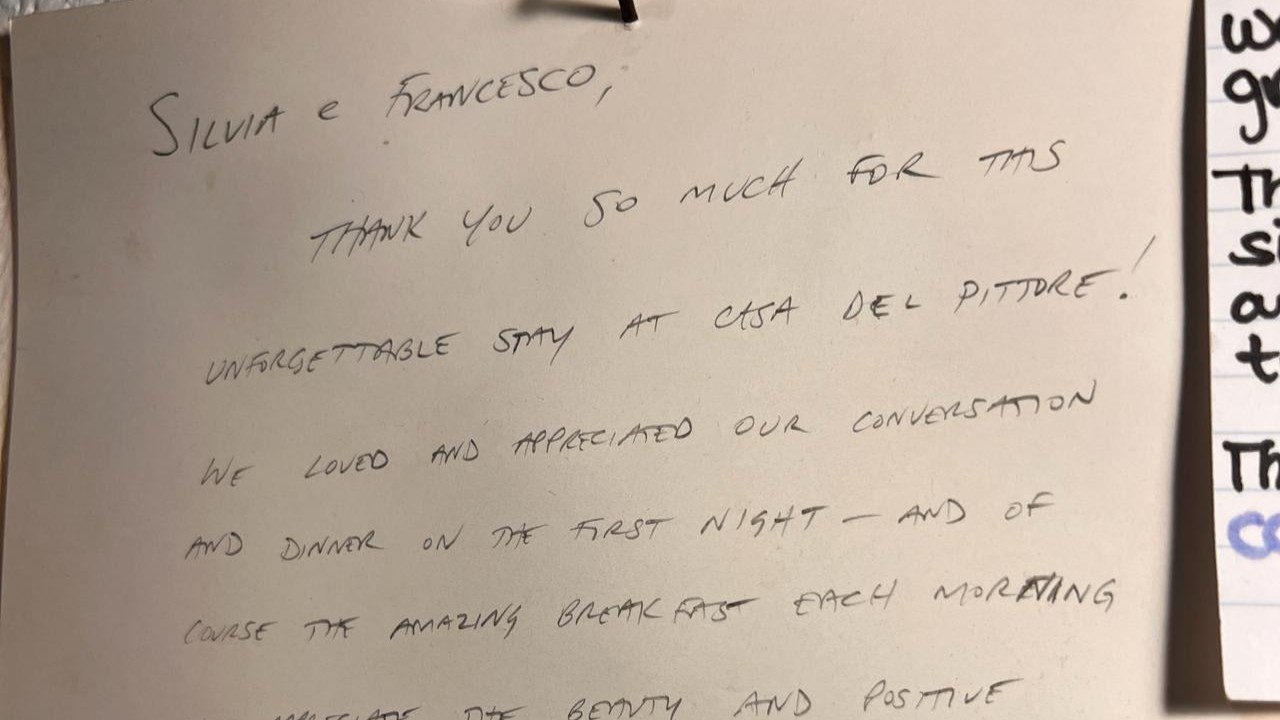 SILVIA e FRANCESCO,
THANK YOU SO MUCH FOR THIS
UNFORGETTABLE STAY AT CASA DEL PITTORE!
WE LOVED AND APPRECIATED OUR CONVERSATION
AND DINNER ON THE FIRST NIGHT — AND OF
COURSE THE AMAZING BREAKFAST EACH MORNING
APPRECIATE THE BEAUTY AND POSITIVE
Th
t
Th